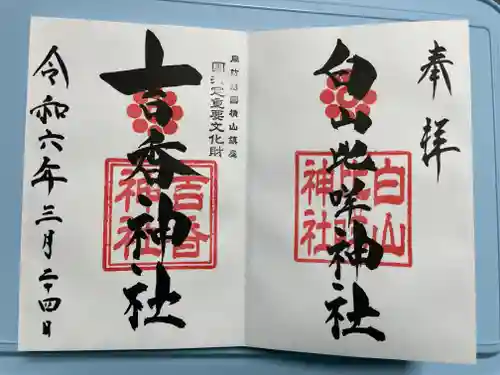 奉拝
白山比咩神社
白山比咩神社
周防国横山鎮座
国指定重要文化財
吉香神社
吉香神社
令和六年三月二十四日